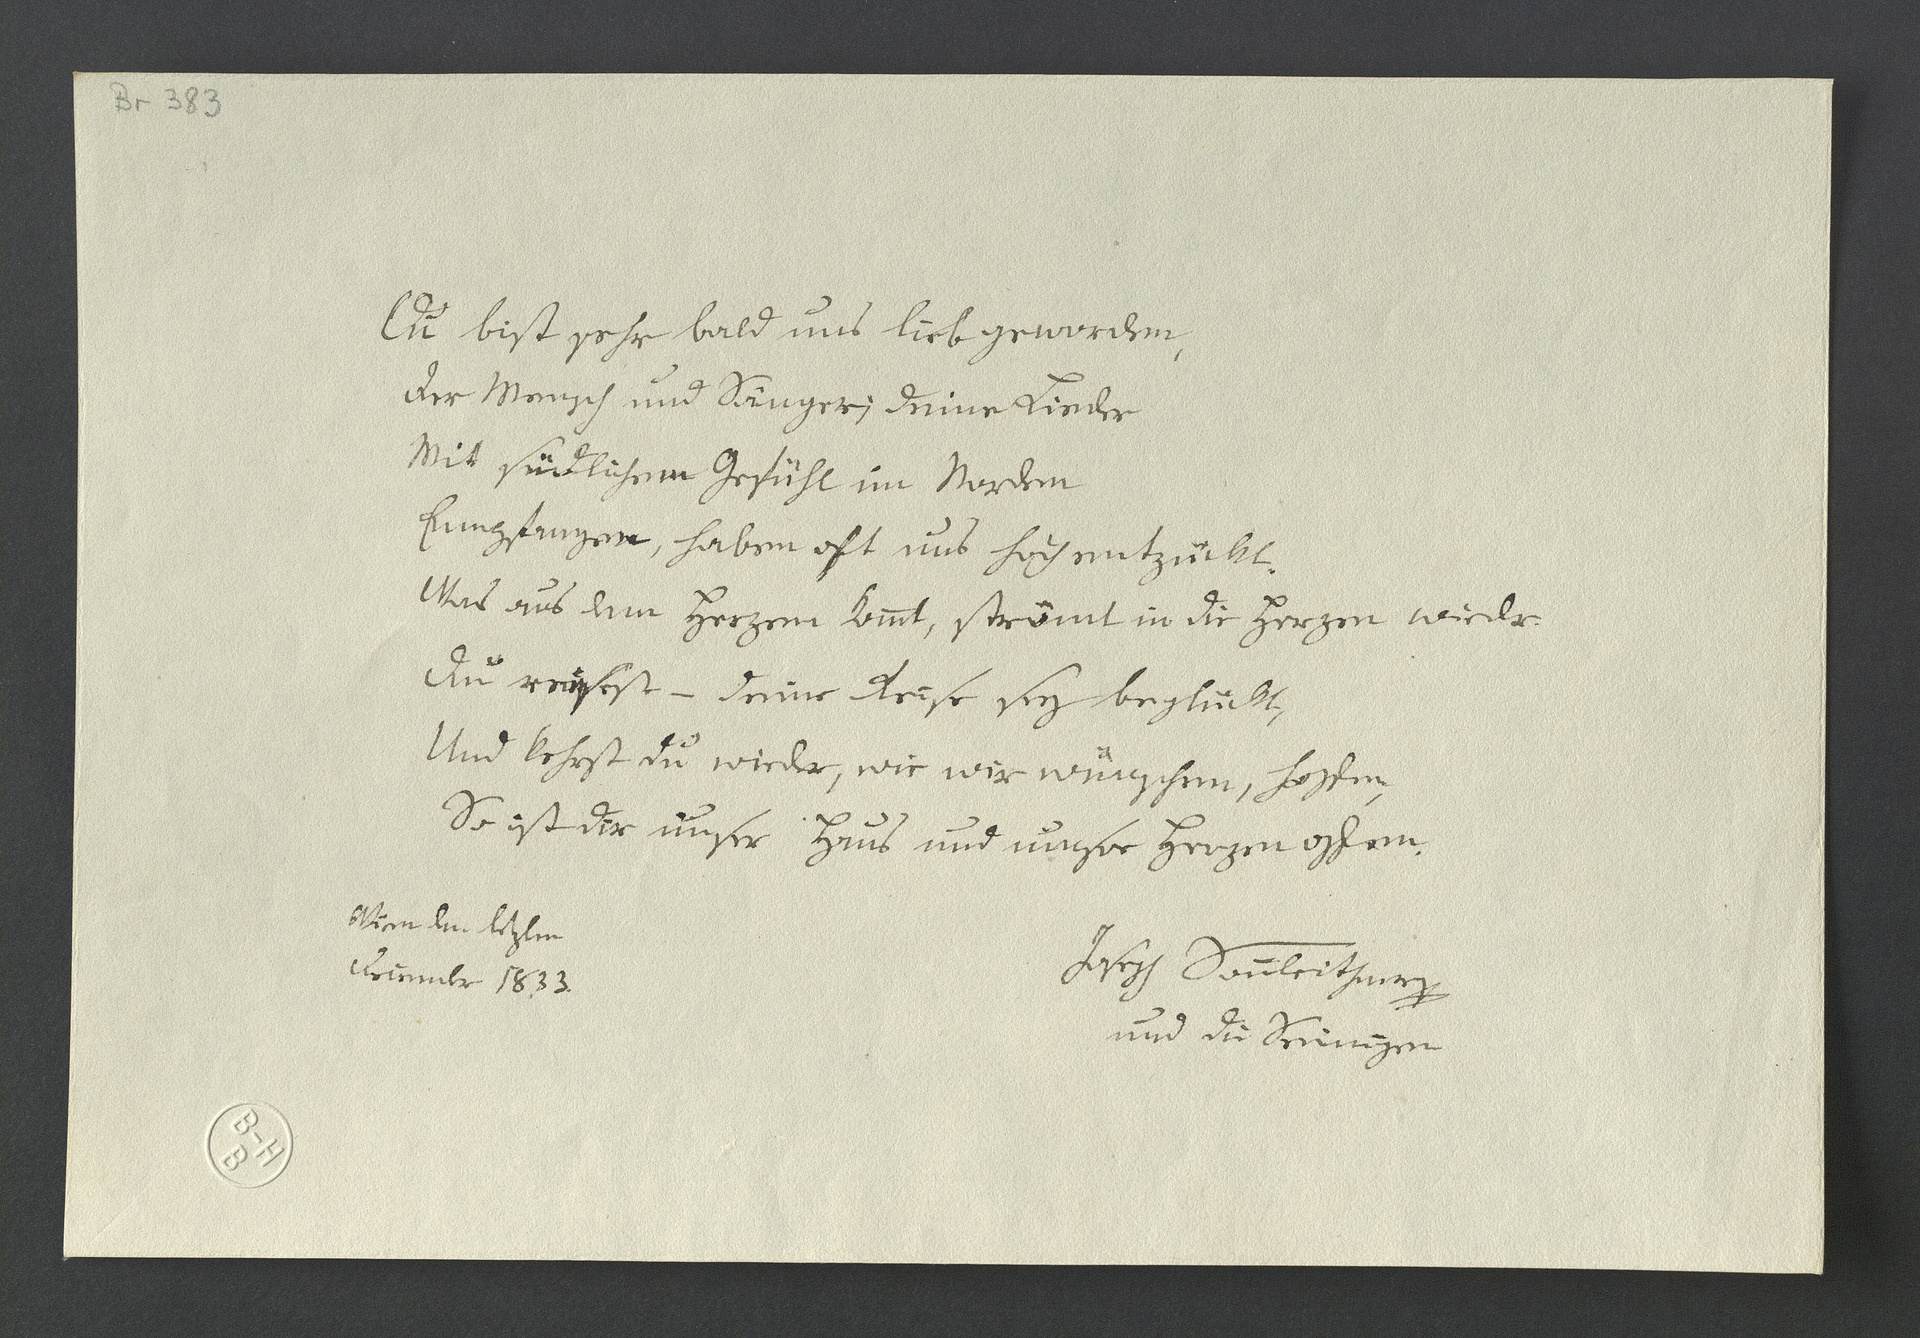 Br 383
Du bist sehr bald uns lieb geworden,
Der Mensch und Sänger; deine Lieder
Mit südlichem Gefühl im Norden
Empfangen, haben oft uns hoch entzückt.
Was aus dem Herzen kom̅t, strömt in die Herzen wieder.
Du reisest – deine Reise sey beglückt,
Und kehrst du wieder, wie wir wünschen, hoffen,
So ist dir unser Haus und unsre Herzen offen.
Wien den letzten
December 1833.
Joseph Sonnleithner
und die Seinigen
B-H
B